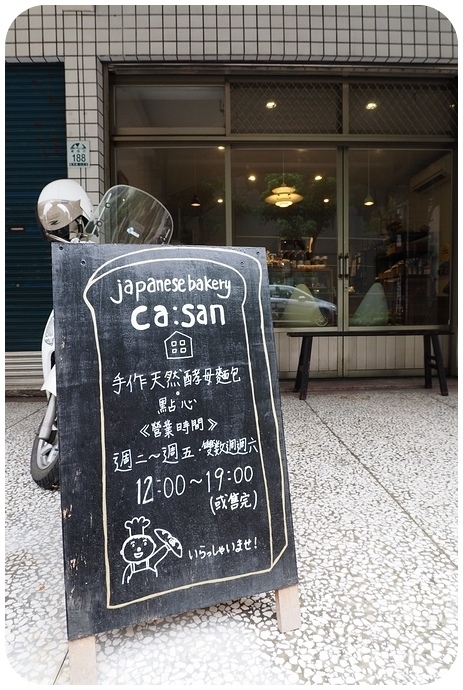 188
japanese bakery
ca:san
手作天然酵母麵包
點心
《營業時間》
週二～週五·雙數週週六
12:00～19:00
(或售完)
いらっしゃいませ!